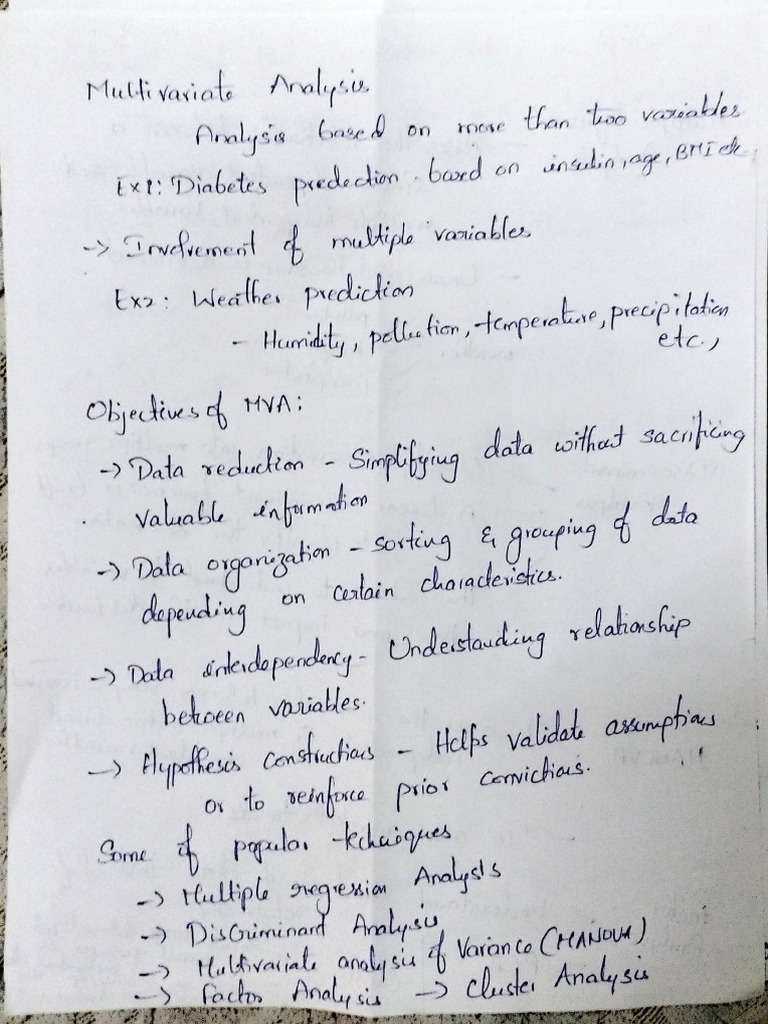 Multivariate Analysis
Analysis based on more than two variables
Ex1: Diabetes predection based on insulin, age, BMI etc,
-> Involvement of multiple variables
Ex2: Weather prediction
- Humidity, pollution, temperature, precipitation
etc.,
Objectives of MVA:
-> Data reduction - Simplifying data without sacrificing
valuable information
-> Data organization - sorting & grouping of data
depending on certain characteristics.
-> Data interdependency - Understanding relationship
between variables.
-> Hypothesis constructions - Helps validate assumptions
or to reinforce prior convictions.
Some of popular techniques
-> Multiple regression Analysis
-> Discriminant Analysis
-> Multivariate analysis of Variance (MANOVA)
-> Factor Analysis -> Cluster Analysis